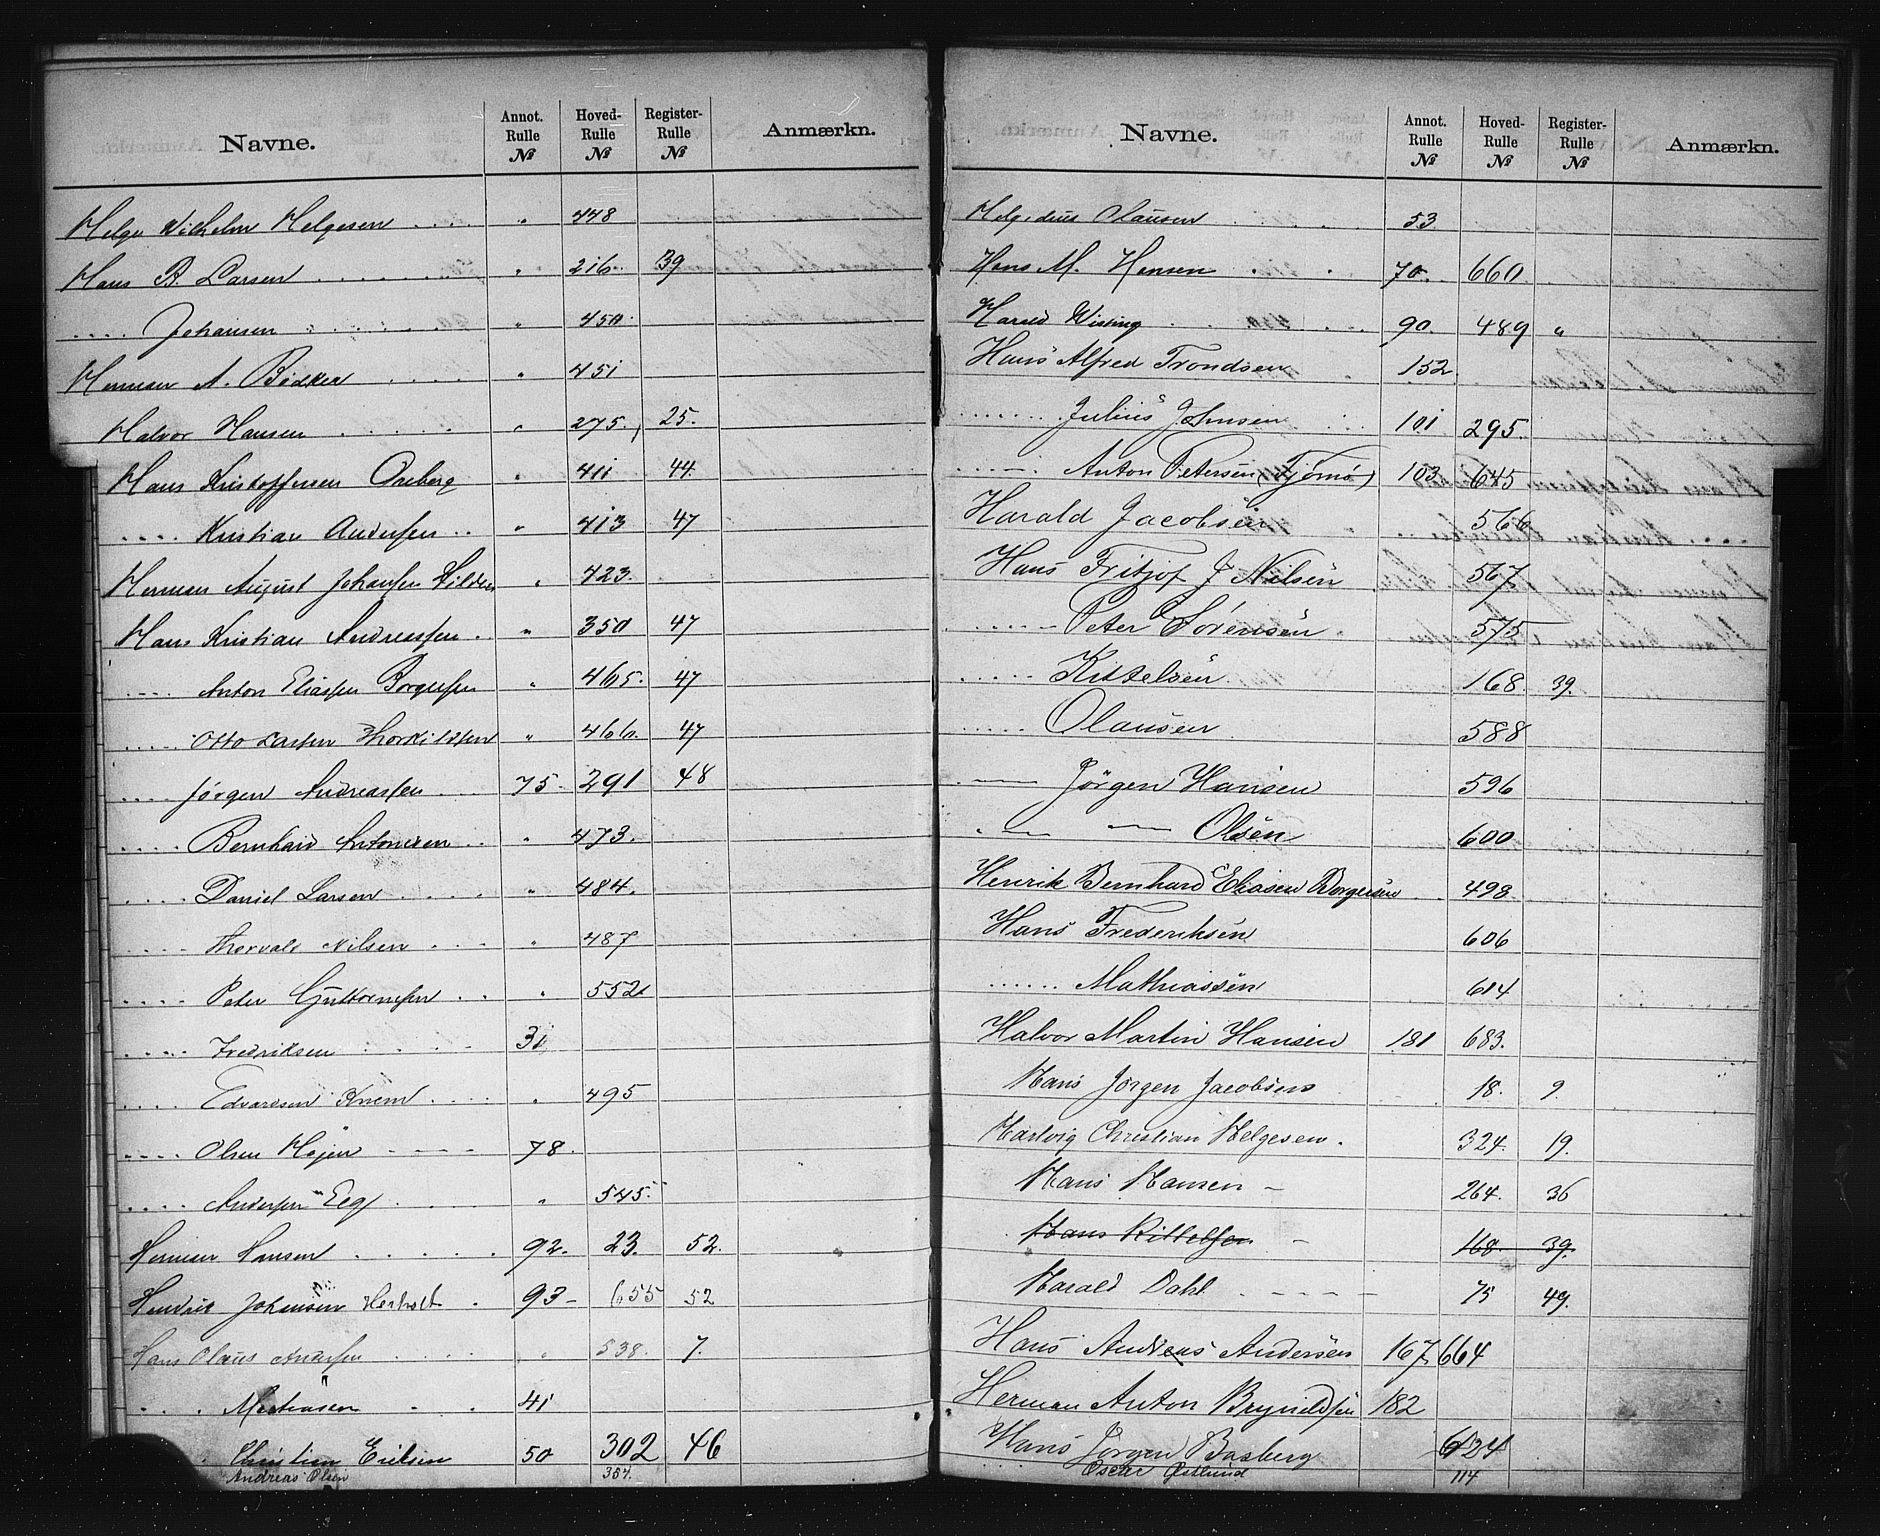 Navne. Annot. Rulle № Hoved-Rulle № Register-Rulle № Anmærkn.
Helge Wilhelm Helgesen .... " 448
Hans B. Larsen ...... " 216. 39
.... Johansen ...... " 450.
Herman A. Bödker .... " 451
Halvor Hansen ..... " 275. 25.
Hans Kristoffersen Oreberg " 411 44.
.... Kristian Andersen .. " 413 47
Herman August Johansen " 423.
Hans Kristian Andreassen . " 350 47
.... Anton Eliassen Borgersen " 465. 47
.... Otto Larsen Thorkildsen " 466. 47
.... Jörgen Andreassen .... 75. 291 48
.... Bernhard Antonsen .. " 473.
.... Daniel Larsen .... " 484.
.... Thorvald Nilsen .... " 487
.... Peter Guttormsen .. " 552
.... Fredriksen .... 31
.... Edvardsen Knem .... " 495
.... Olsen Höjen .... 78.
.... Andersen Eeg .... " 545.
Herman Hansen ..... 92. 23. 52.
Hendrik Johansen Herholt . 93- 655 52
Hans Olaus Andersen .... " 538. 7.
.... Martinsen .. 41
Christian Eriksen 50 302 46
Andreas Olsen 357.
Navne. Annot. Rulle № Hoved-Rulle № Register-Rulle № Anmærkn.
Helgedius Olausen .... 53
Hans M. Hansen ... 70. 660.
Harald Wisting .... 90. 489 "
Hans Alfred Trondsen 152.
....... Julius Johnsen 101 295.
....... Anton Petersen (Tjömö) 103 645
Harald Jacobsen 566
Hans Fritjof J Nilsen 567
....... Peter Sörensen . 575
..... Kittelsen 168 39.
..... Olausen 588
—— Jörgen Hansen 596
—— —— Olsen 600
Henrik Bernhard Eliasen Borgersen .. 498.
Hans Frederiksen 606
...... Mathiassen 614
Halvor Martin Hansen 181 683.
Hans Jörgen Jacobsen 18. 9.
Hartvig Christian Helgesen . 324. 19.
Hans Hansen - 264. 36
Hans Kittelsen - 168. 39.
Harald Dahl .---- 75 49.
Hans Andreas Andersen 167 664
Herman Anton Brynildsen 182
Hans Jörgen Basberg 624
Oscar Östlund 114